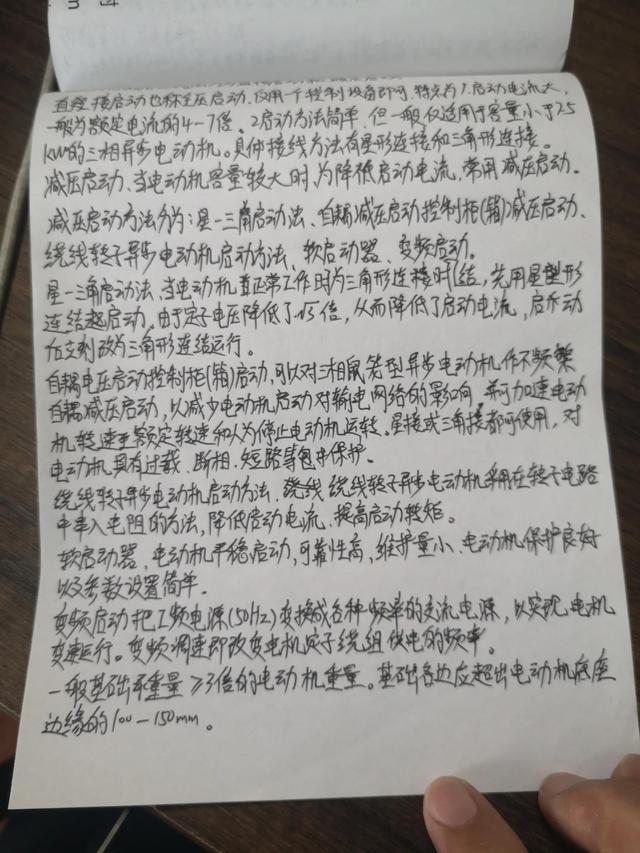 直接接启动也称全压启动.仅用一个控制设备即可.特点为1.启动电流大,
一般为额定电流的4-7倍。2启动方法简单.但一般仅适用于容量小于7.5
KW的三相异步电动机。具体接线方法有星形连接和三角形连接。
减压启动、当电动机容量较大时为降低启动电流,常用减压启动.
减压启动方法分为:星-三角启动法、自耦减压启动控制柜(箱)减压启动、
绕线转子异步电动机启动方法、软启动器、变频启动。
星-三角启动法、当电动机正常工作时为三角形连接时,先用星型形
连结起启动.由于定子电压降低了√3倍,从而降低了启动电流,启动
在支到改为三角形连结运行。
自耦电压启动控制柜(箱)启动,可以对三相鼠笼型异步电动机作不频繁
自耦减压启动,以减少电动机启动对输电网络的影响,并可加速电动
机转速至额定转速和人为停止电动机运转。星接或三角接都可使用,对
电动机具有过载、断相.短路等保护。
绕线转子异步电动机启动方法.绕线绕线转子异步电动机采用在转子电路
中串入电阻的方法,降低启动电流、提高启动转矩。
软启动器、电动机平稳启动,可靠性高,维护量小、电动机保护良好
以及参数设置简单.
变频启动把工频电源(50Hz)变换成各种频率的交流电源,以实现电机
变速运行。变频调速即改变电机定子绕组供电的频率。
一般基础重量≥3倍的电动机重量。基础各边应超出电动机底座
边缘的100-150mm。